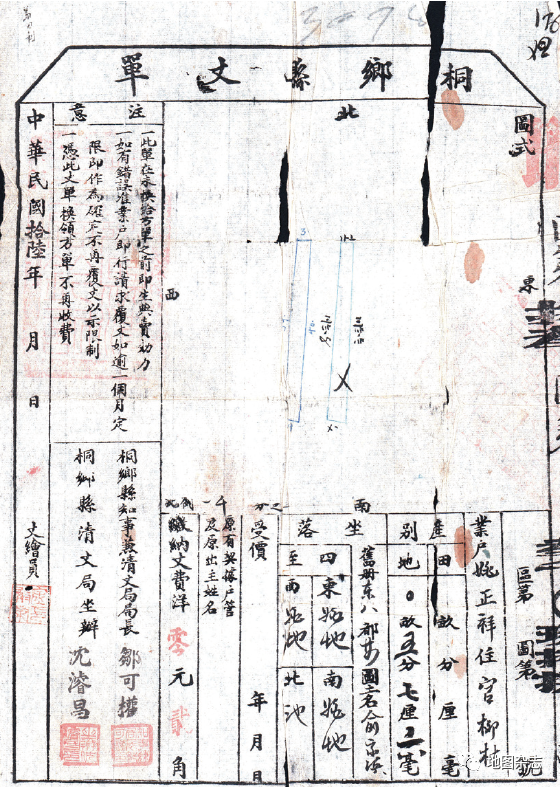 桐鄉縣丈單
圖式
北
東
西
南
業戶姚正祥住官柳村
區第
圖第
號
產別
田 畝分厘毫
地 〇畝五分七厘二毫
坐落
四至
東姚地
南姚地
西姚地
北池
受價
年月日
原有契據戶管
及原出主姓名
繳納丈費洋零元貳角
注意
一此單在未換給方單之前即生典賣効力
一如有錯誤准業戶即行請求覆丈如逾一個月定
限即作為確定不再覆丈以示限制
一憑此丈單換領方單不再收費
桐鄉縣知事兼清丈局局長鄒可權
桐鄉縣清丈局坐辦沈濬昌
中華民國拾陸年 月 日
丈繪員
地图杂志